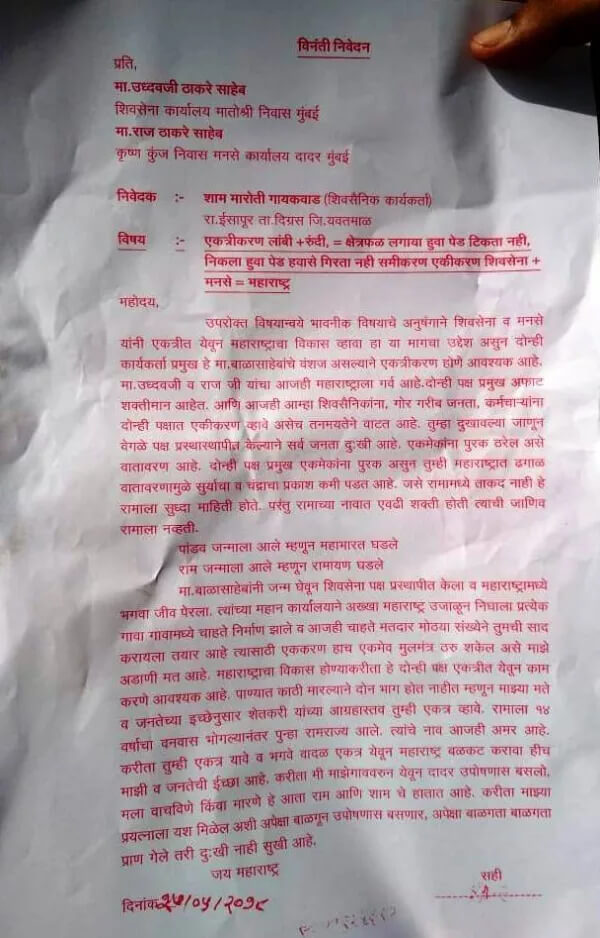 विनंती निवेदन
प्रति,
मा.उध्दवजी ठाकरे साहेब
शिवसेना कार्यालय मातोश्री निवास मुंबई
मा.राज ठाकरे साहेब
कृष्ण कुंज निवास मनसे कार्यालय दादर मुंबई
निवेदक :- शाम मारोती गायकवाड (शिवसैनिक कार्यकर्ता)
रा.ईसापूर ता.दिग्रस जि.यवतमाळ
विषय :- एकत्रीकरण लांबी +रुंदी, = क्षेत्रफळ लगाया हुवा पेड टिकता नही,
निकला हुवा पेड हवासे गिरता नही समीकरण एकीकरण शिवसेना +
मनसे = महाराष्ट्र
महोदय,
उपरोक्त विषयान्वये भावनीक विषयाचे अनुषंगाने शिवसेना व मनसे
यांनी एकत्रीत येवून महाराष्ट्राचा विकास व्हावा हा या मागचा उद्देश असुन दोन्ही
कार्यकर्ता प्रमुख हे मा.बाळासाहेबांचे वंशज असल्याने एकत्रीकरण होणे आवश्यक आहे.
मा.उध्दवजी व राज जी यांचा आजही महाराष्ट्राला गर्व आहे.दोन्ही पक्ष प्रमुख अफाट
शक्तीमान आहेत. आणि आजही आम्हा शिवसैनिकांना, गोर गरीब जनता, कर्मचाऱ्यांना
दोन्ही पक्षात एकीकरण व्हावे असेच तनमयतेने वाटत आहे. तुम्हा दुखावल्या जाणून
वेगळे पक्ष प्रस्थास्थापीत केल्याने सर्व जनता दुःखी आहे. एकमेकांना पुरक ठरेल असे
वातावरण आहे. दोन्ही पक्ष प्रमुख एकमेकांना पुरक असुन तुम्ही महाराष्ट्रात ढगाळ
वातावरणामुळे सुर्याचा व चंद्राचा प्रकाश कमी पडत आहे. जसे रामामध्ये ताकद नाही हे
रामाला सुध्दा माहिती होते. परंतु रामाच्या नावात एवढी शक्ती होती त्याची जाणिव
रामाला नव्हती.
पांडव जन्माला आले म्हणून महाभारत घडले
राम जन्माला आले म्हणून रामायण घडले
मा.बाळासाहेबांनी जन्म घेवून शिवसेना पक्ष प्रस्थापीत केला व महाराष्ट्रामध्ये
भगवा जीव पेरला. त्यांच्या महान कार्यालयाने अख्खा महाराष्ट्र उजाळून निघाला प्रत्येक
गावा गावामध्ये चाहते निर्माण झाले व आजही चाहते मतदार मोठया संख्येने तुमची साद
करायला तयार आहे त्यासाठी एककरण हाच एकमेव मुलमंत्र ठरु शकेल असे माझे
अडाणी मत आहे. महाराष्ट्राचा विकास होण्याकरीता हे दोन्ही पक्ष एकत्रीत येवून काम
करणे आवश्यक आहे. पाण्यात काठी मारल्याने दोन भाग होत नाहीत म्हणून माझ्या मते
व जनतेच्या इच्छेनुसार शेतकरी यांच्या आग्रहास्तव तुम्ही एकत्र व्हावे. रामाला १४
वर्षाचा वनवास भोगल्यानंतर पुन्हा रामराज्य आले. त्यांचे नाव आजही अमर आहे.
करीता तुम्ही एकत्र यावे व भगवे वादळ एकत्र येवून महाराष्ट्र बळकट करावा हीच
माझी व जनतेची ईच्छा आहे. करीता मी माझेगाववरुन येवून दादर उपोषणास बसलो,
मला वाचविणे किंवा मारणे हे आता राम आणि शाम चे हातात आहे. करीता माझ्या
प्रयत्नाला यश मिळेल अशी अपेक्षा बाळगून उपोषणास बसणार, अपेक्षा बाळगता बाळगता
प्राण गेले तरी दुःखी नाही सुखी आहे.
जय महाराष्ट्र
सही
दिनांक २५/०५/२०१८